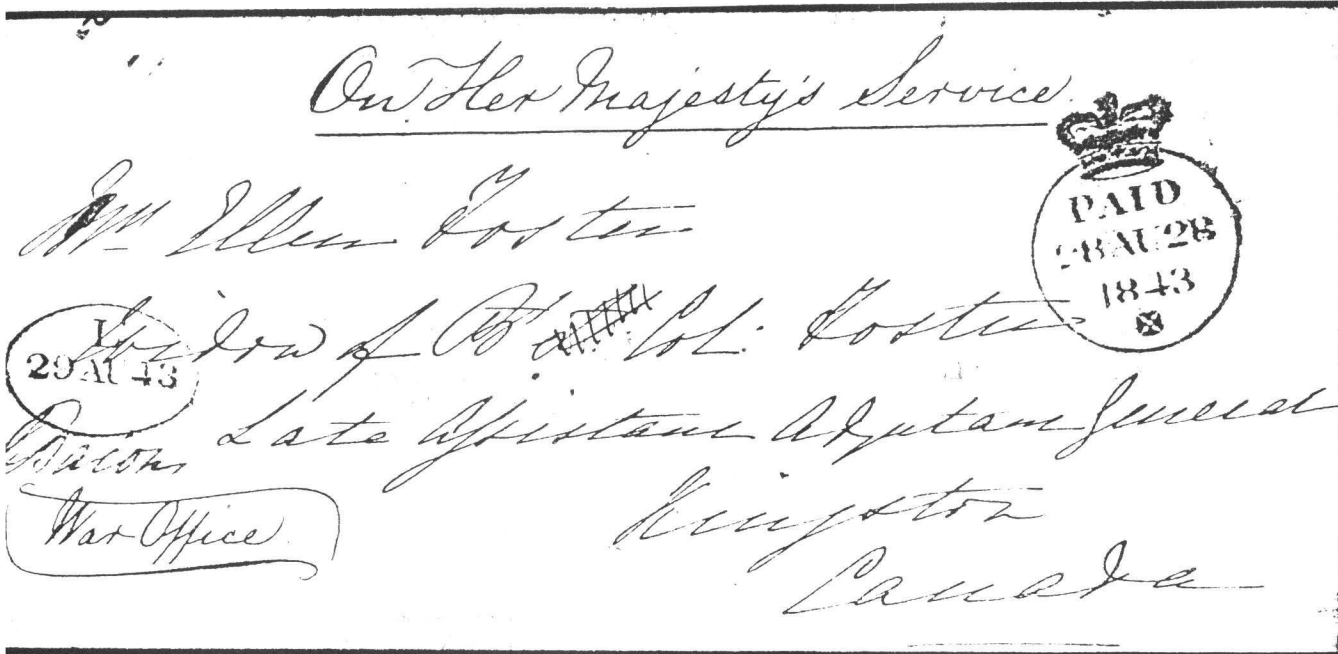 On Her Majesty's Service
PAID
28 AU 28
1843
Mrs Ellen Foster
Widow of Bt Col. Foster
L
29 AU 43
Late Assistant Adjutant General
War Office
Kingston
Canada